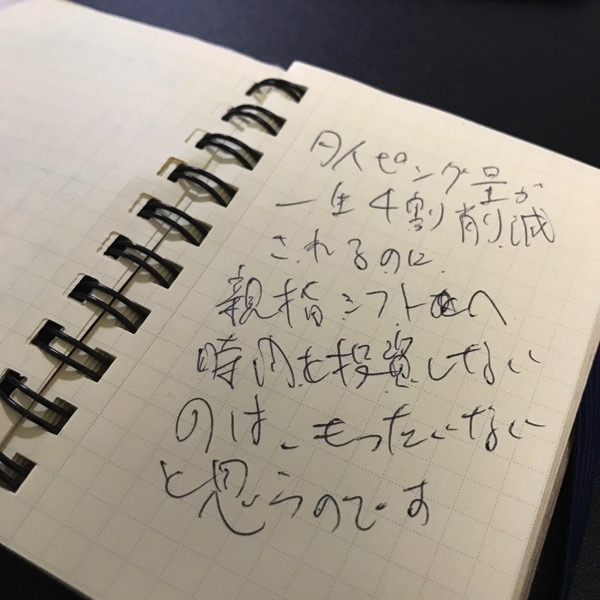 タイピング量が
一生4割削減
されるのに
親指シフトへ
時間を投資しない
のは、もったいない
と思うのです